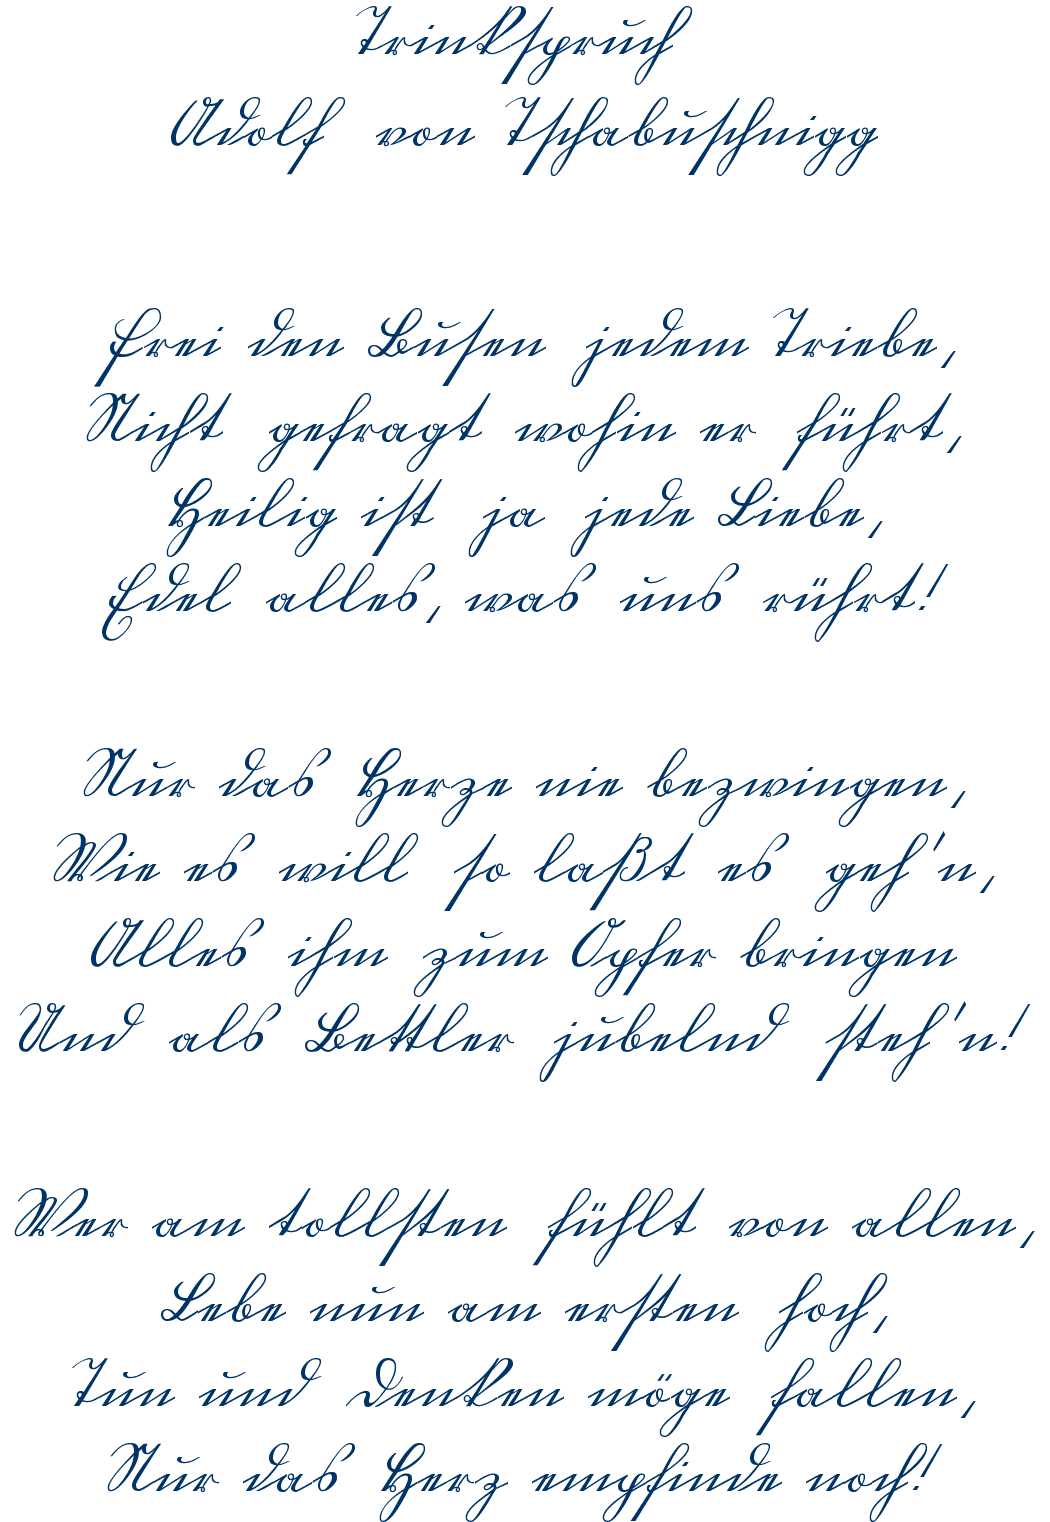 Trinkspruch
Adolf von Tschabuschnigg
Frei den Busen jedem Triebe,
Nicht gefragt wohin er führt,
Heilig ist ja jede Liebe,
Edel alles, was uns rührt!
Nur das Herze nie bezwingen,
Wie es will so laßt es geh'n,
Alles ihm zum Opfer bringen
Und als Bettler jubelnd steh'n!
Wer am tollsten fühlt von allen,
Lebe nun am ersten hoch,
Tun und Denken möge fallen,
Nur das Herz empfinde noch!